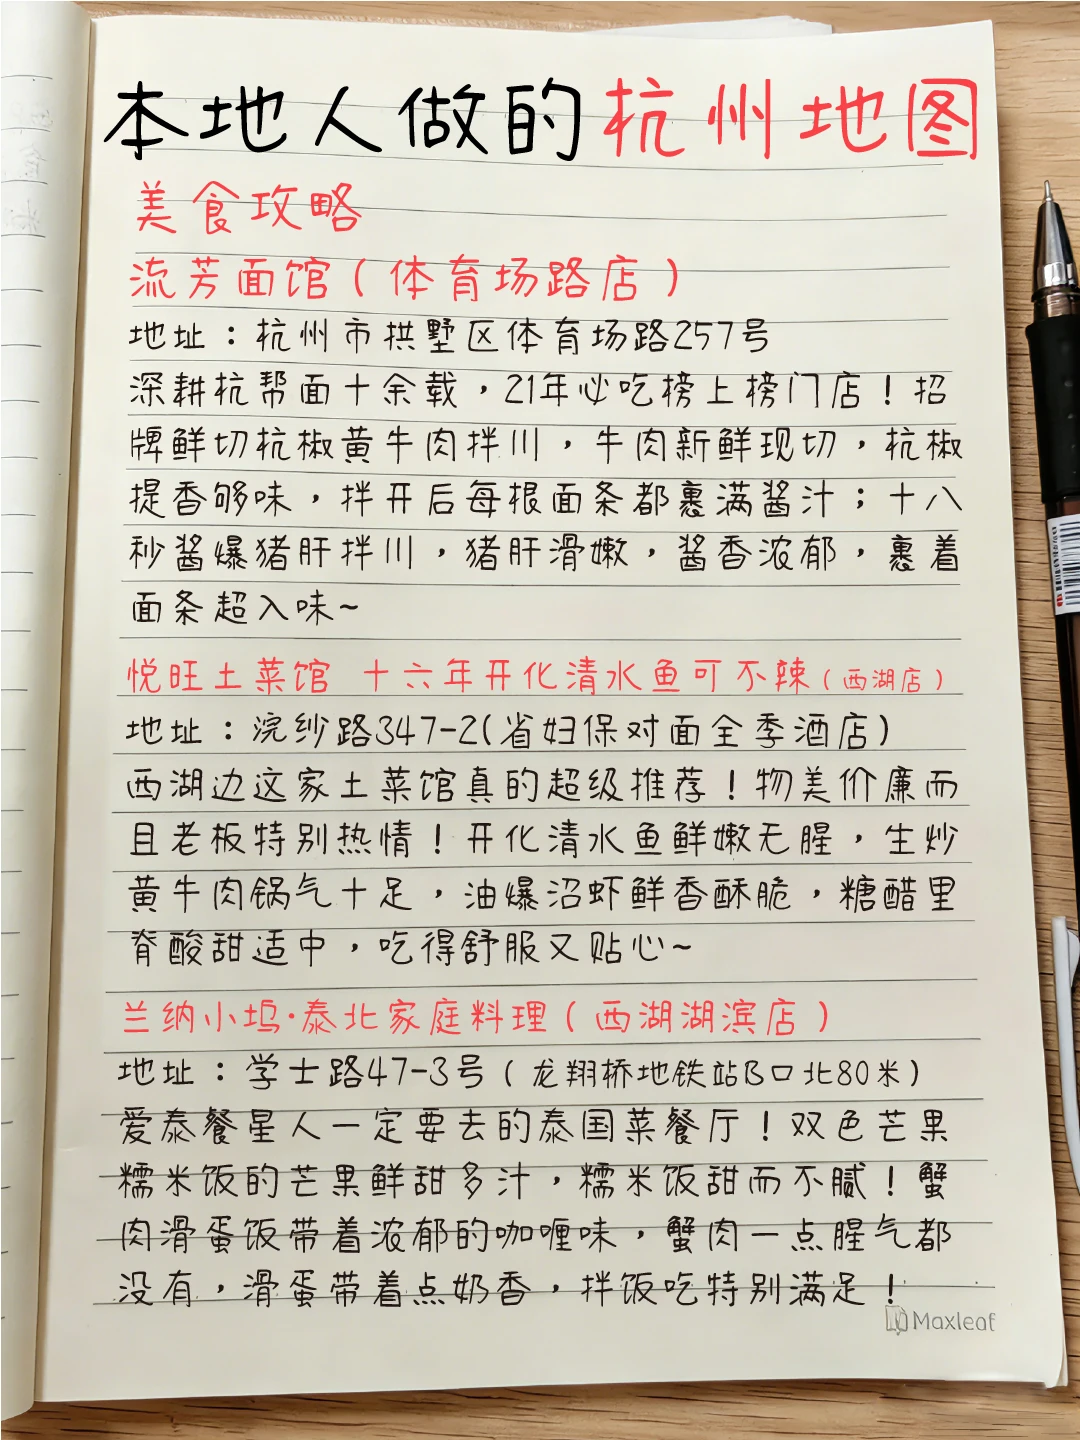 本地人做的杭州地图
美食攻略
流芳面馆（体育场路店）
地址：杭州市拱墅区体育场路257号
深耕杭帮面十余载，21年必吃榜上榜门店！招
牌鲜切杭椒黄牛肉拌川，牛肉新鲜现切，杭椒
提香够味，拌开后每根面条都裹满酱汁；十八
秒酱爆猪肝拌川，猪肝滑嫩，酱香浓郁，裹着
面条超入味~
悦旺土菜馆 十六年开化清水鱼可不辣（西湖店）
地址：浣纱路347-2(省妇保对面全季酒店)
西湖边这家土菜馆真的超级推荐！物美价廉而
且老板特别热情！开化清水鱼鲜嫩无腥，生炒
黄牛肉锅气十足，油爆沼虾鲜香酥脆，糖醋里
脊酸甜适中，吃得舒服又贴心~
兰纳小坞·泰北家庭料理（西湖湖滨店）
地址：学士路47-3号（龙翔桥地铁站B口北80米）
爱泰餐星人一定要去的泰国菜餐厅！双色芒果
糯米饭的芒果鲜甜多汁，糯米饭甜而不腻！蟹
肉滑蛋饭带着浓郁的咖喱味，蟹肉一点腥气都
没有，滑蛋带着点奶香，拌饭吃特别满足！
Maxleaf